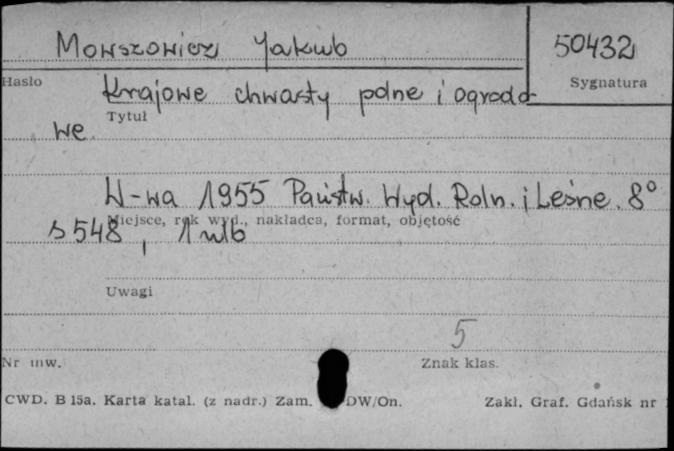 Mowszowicz Jakub
50432
Hasło
Sygnatura
Krajowe chwasty polne i ogrodo-
Tytuł
we
W-wa 1955 Państw. Wyd. Roln. i Leśne. 8°
Miejsce, rok wyd., nakładca, format, objętość
s 548, 1 nlb
Uwagi
5
Nr inw.
Znak klas.
CWD. B 15a. Karta katal. (z nadr.) Zam. DW/On. Zakł. Graf. Gdańsk nr